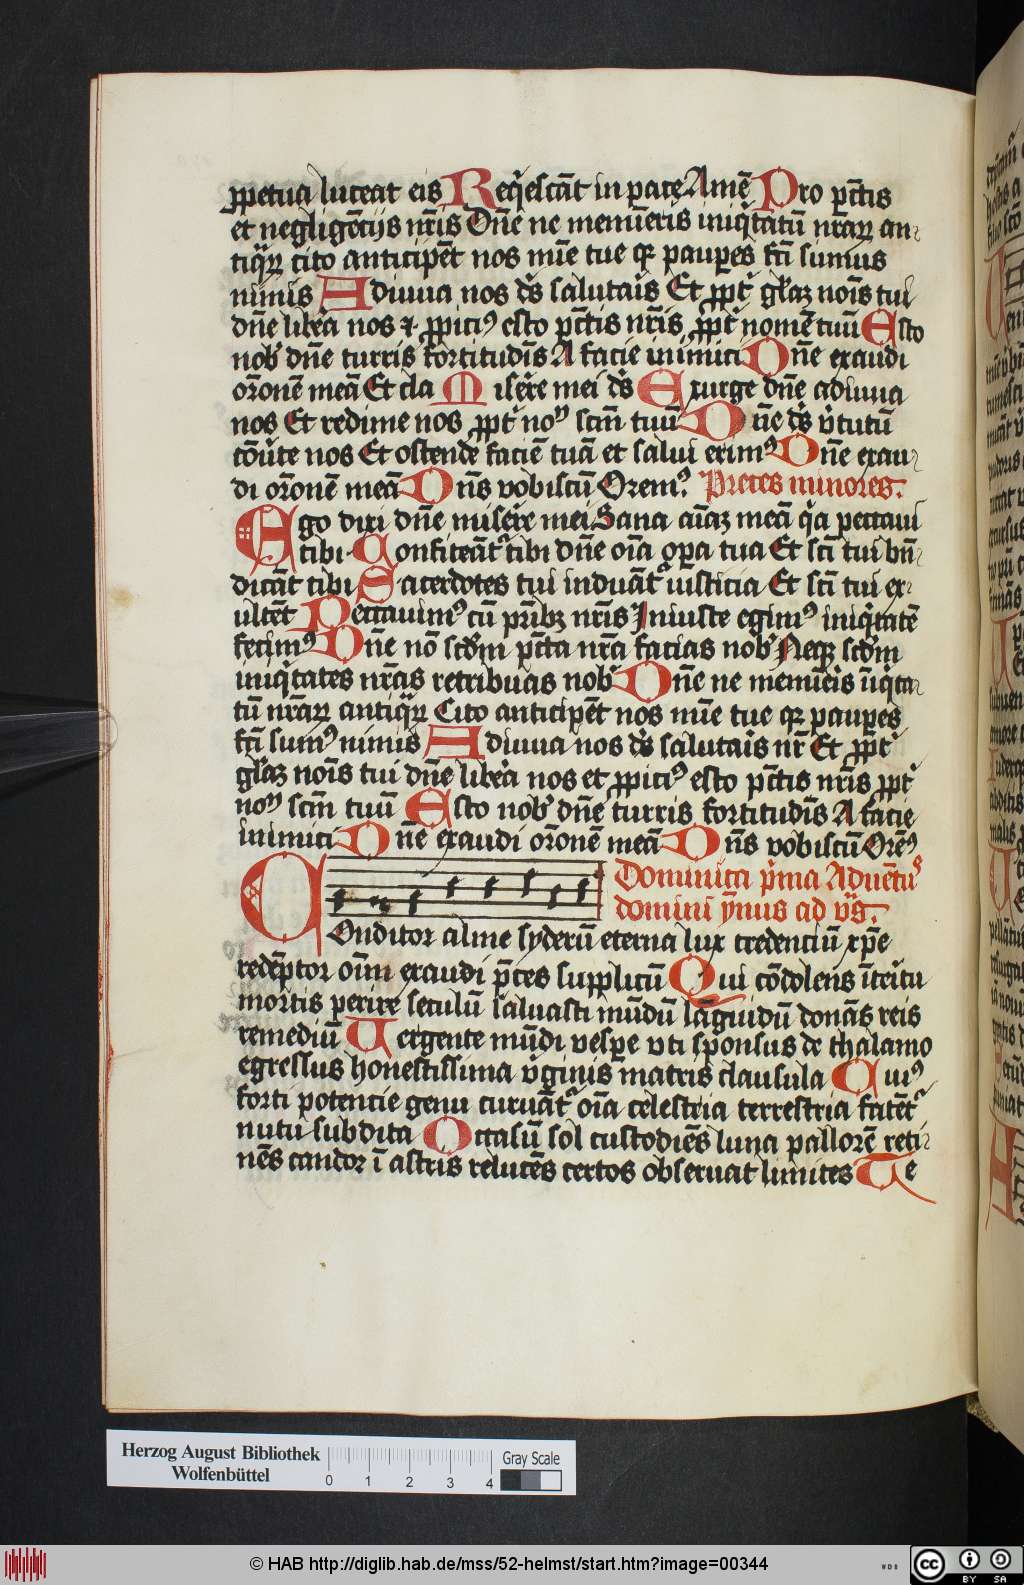 ꝓpetua luceat eis Reqͥescāt in pace Amē Pro pctīs
et negligēcijs nr̄is Dn̄e ne memīeris iniqͥtatū nr̄aꝝ an
tiqͣꝝ cito anticipēt nos mīe tue qꝛ pauꝑes fcī sumus
nimis Adiuua nos ds̄ salutaīs Et ꝓpt̾ glāꝫ noīs tui
dn̄e libēa nos ⁊ ꝓpiciꝰ esto pctīs nr̄is ꝓpt̾ nomē tuū Esto
nob̾ dn̄e turris fortitudīs A facie inimici Dn̄e exaudi
or̄onē meā Et cla Miser̄e mei ds̄ Exurge dn̄e adiuua
nos Et redime nos ꝓpt̾ noꝰ scm̄ tuū Dn̄e ds̄ v̾tutū
cōu̾te nos Et ostende faciē tuā et salui erimꝰ Dn̄e exau
di or̄onē meā Dn̄s vobiscū Oremꝰ Preces minores.
Ego dixi dn̄e miser̄e mei Sana aīaꝫ meā qͥa peccaui
tibi Confiteāt̾ tibi dn̄e oīa oꝑa tua Et scī tui bn̄
dicāt tibi Sacerdotes tui induāt̾ iusticia Et scī tui ex
ultēt Peccauimꝰ cū pr̄ibꝫ nr̄is Iniuste egimꝰ iniqͥtatē
fecimꝰ Dn̄e nō scd̄m pctā nr̄a facias nob̾ Neqꝫ scd̄m
iniqͥtates nr̄as retribuas nob̾ Dn̄e ne memīeīs īiqͥta
tū nr̄aꝝ antiqͣꝝ Cito anticipēt nos mīe tue qꝛ pauꝑes
fcī sumꝰ nimis Adiuua nos ds̄ salutaīs nr̄ Et ꝓpt̾
glāꝫ noīs tui dn̄e libēa nos et ꝓpiciꝰ esto pctīs nr̄is ꝓpt̾
noꝰ scm̄ tuū Esto nob̾ dn̄e turris fortitudīs A facie
inimici Dn̄e exaudi or̄onē meā Dn̄s vobiscū Orēꝰ
Dominica pͥma Aduētꝰ
domini ym̄nus ad vꝰs̄.
COnditor alme syderū eterna lux credenciū xp̄e
redēptor oīm exaudi p̄ces supplicū Qui cōdolens īteritu
mortis perire seculū saluasti mūdū lāguidū donās reis
remediū Uergente mūdi vesꝑe vti sponsus de thalamo
egressus honestissima v̾ginis matris clausula Cuiꝰ
forti potencie genu curuāt̾ oīa celestia terrestria fatēt̾
nutu subdita Occasū sol custodiēs luna pallorē reti
nēs candor ī astris relucēs certos obseruat limites Te
Herzog August Bibliothek
Wolfenbüttel
0 1 2 3 4
Gray Scale
© HAB http://diglib.hab.de/mss/52-helmst/start.htm?image=00344
WDB
cc BY SA